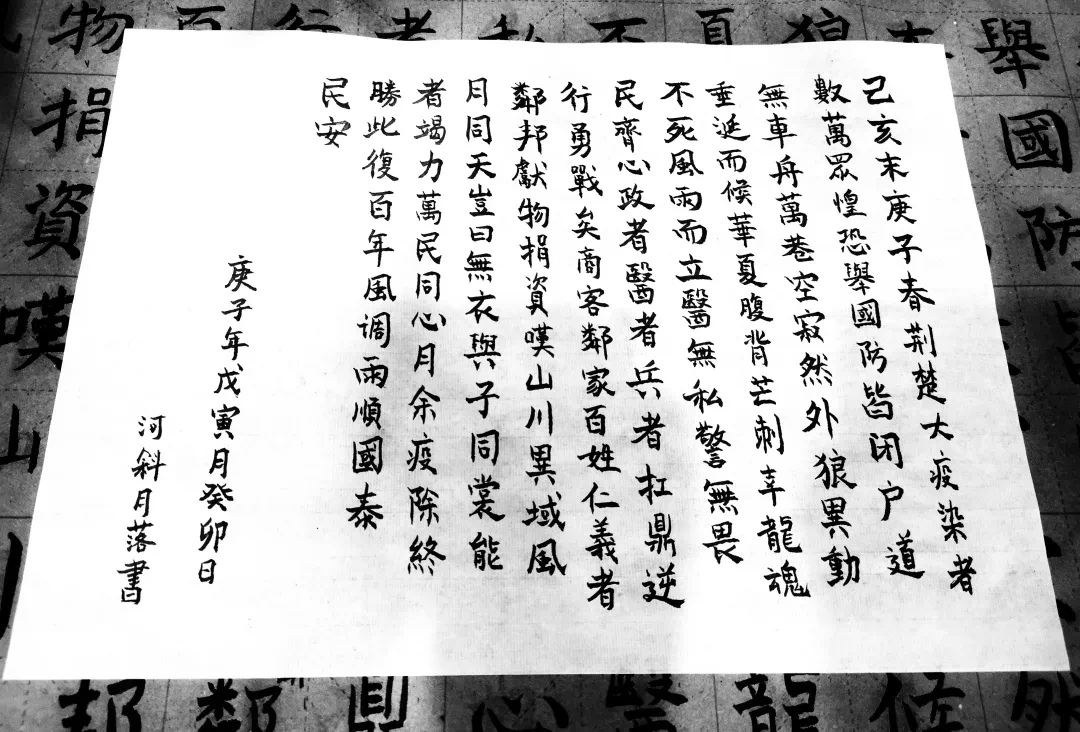 己亥末庚子春荆楚大疫染者
數萬眾惶恐舉國防皆闭户道
無車舟萬巷空寂然外狼異動
垂涎而候華夏腹背芒刺幸龍魂
不死風雨而立醫無私警無畏
民齊心政者醫者兵者扛鼎逆
行勇戰矣商客鄰家百姓仁義者
鄰邦獻物捐資嘆山川異域風
月同天豈曰無衣與子同裳能
者竭力萬民同心月余疫除終
勝此復百年風调雨順國泰
民安
庚子年戊寅月癸卯日
河斜月落書
物百行者私不夏狼
舉
國
防
皆
然
捐
資
嘆
山
川
邦鄰鼎心醫龍候